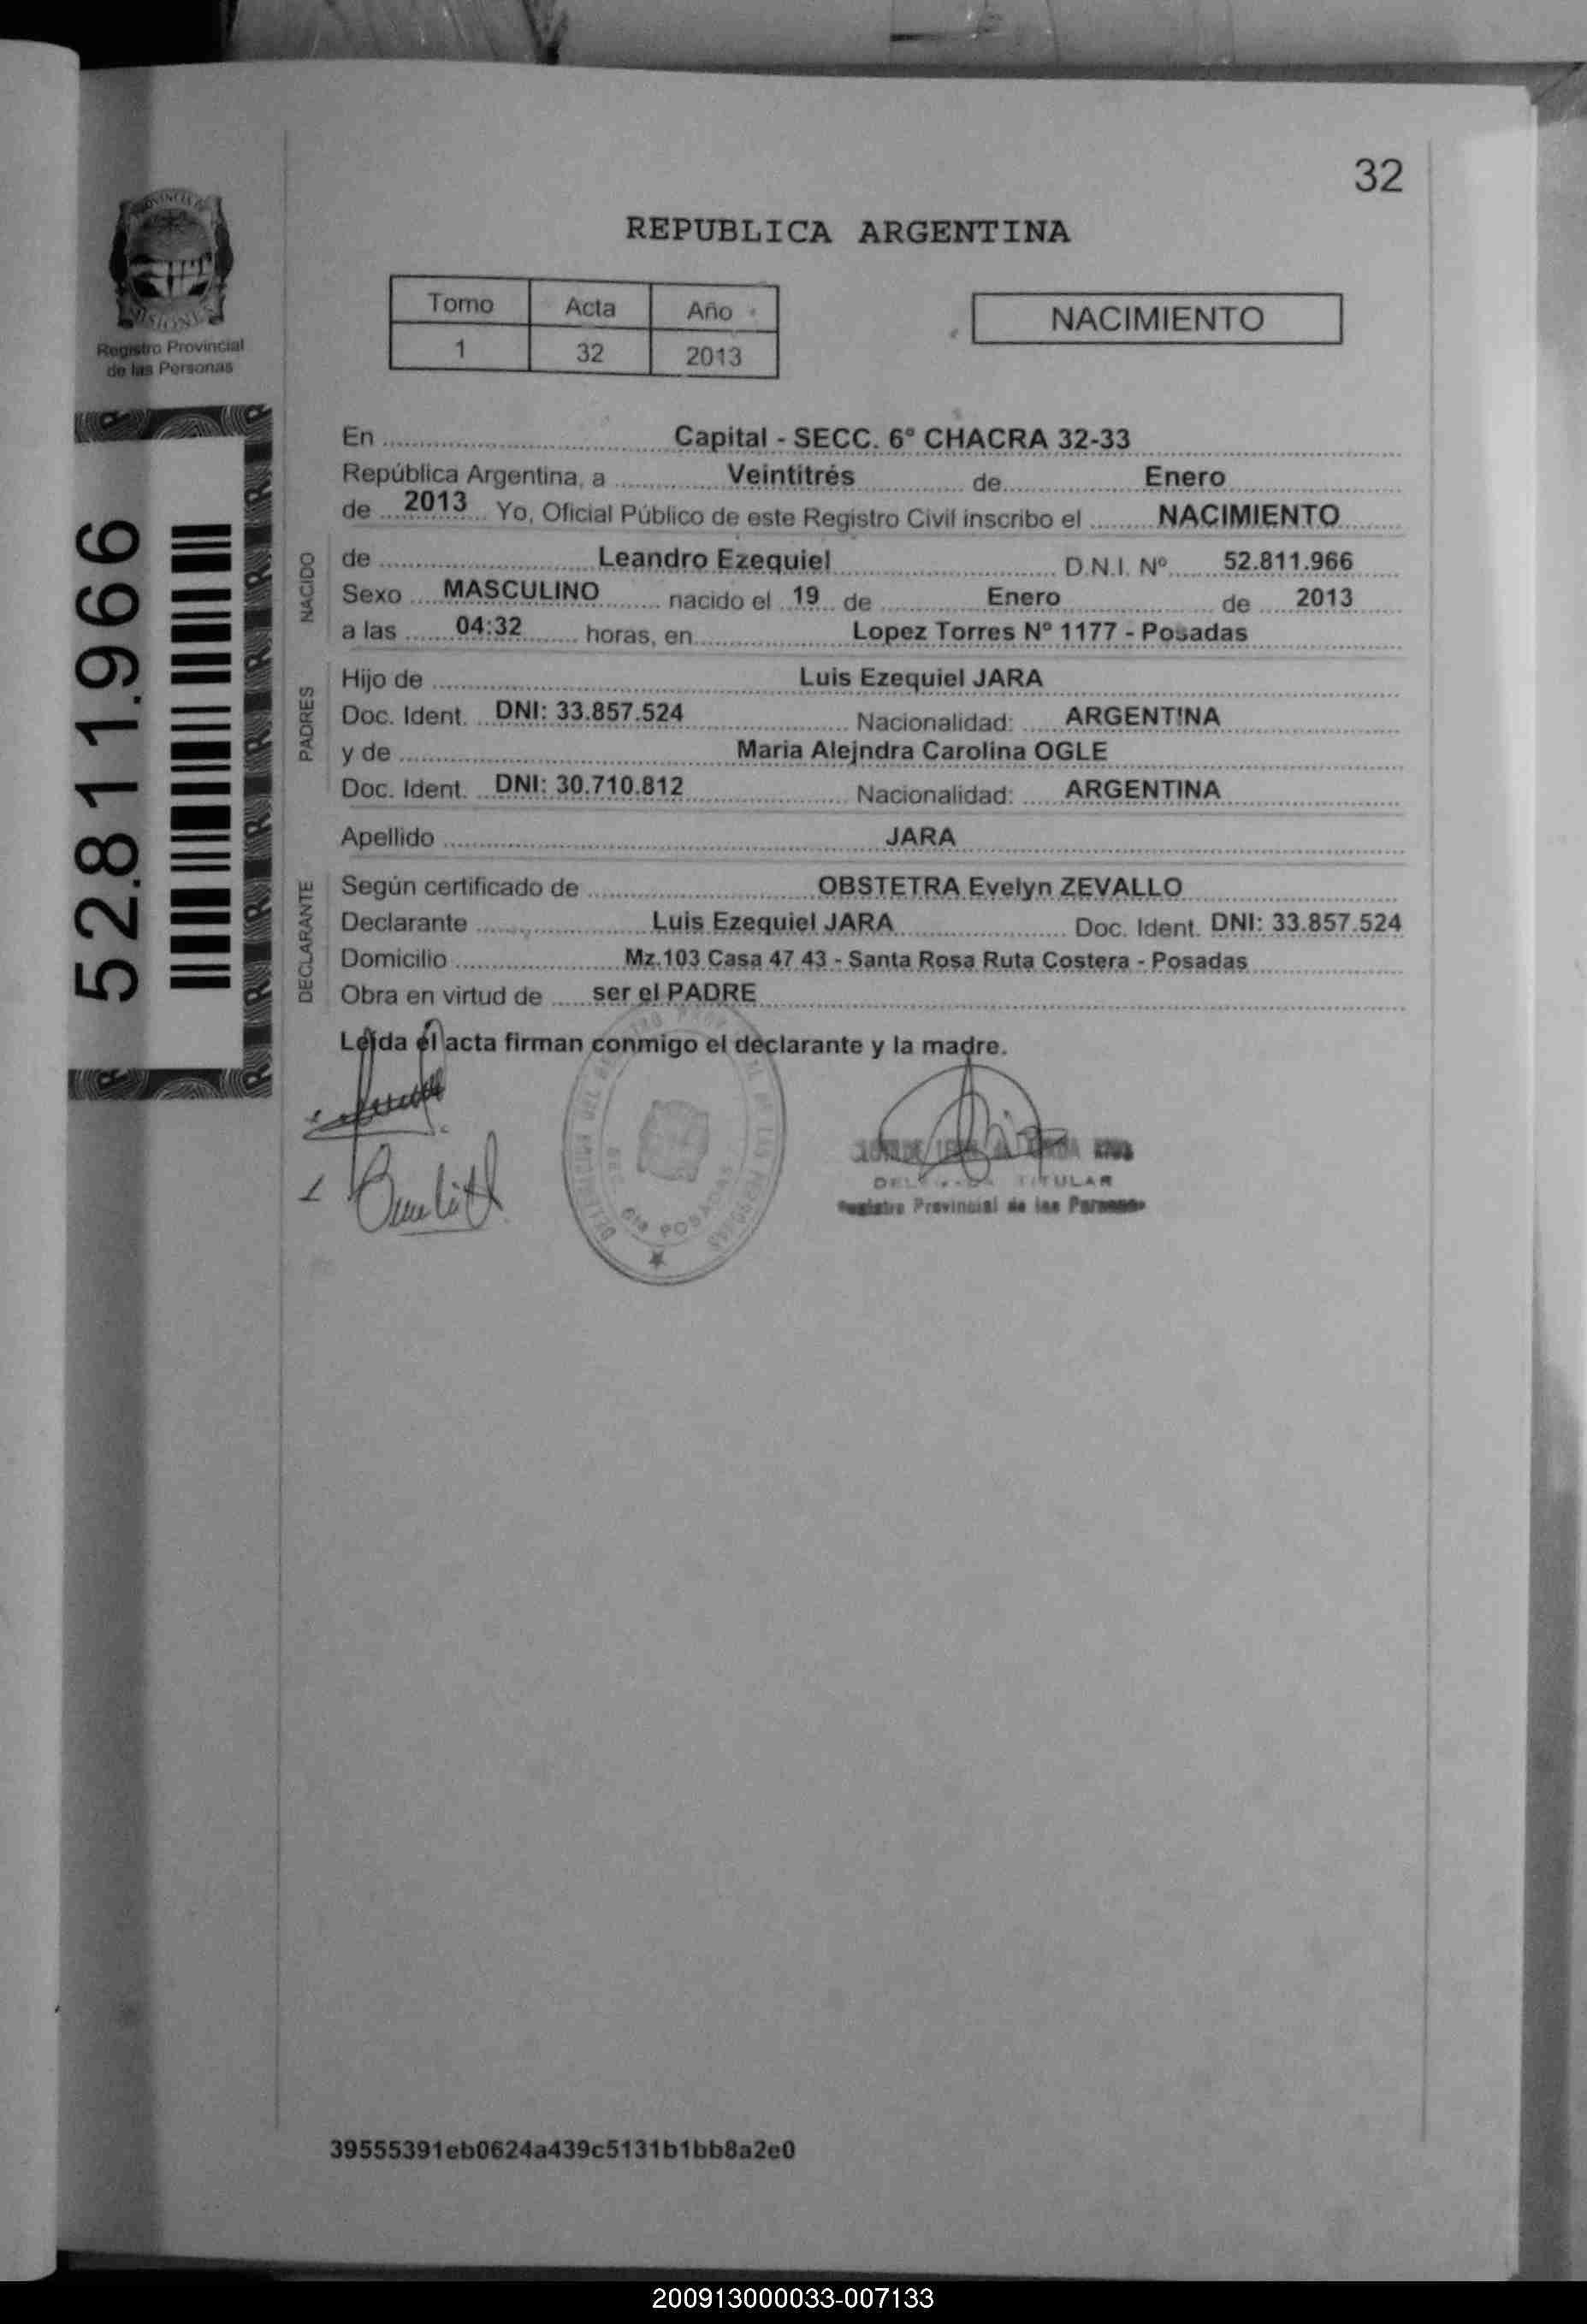 32
REPUBLICA ARGENTINA
PROVINCIA DE
MISIONES
Registro Provincial
de las Personas
Tomo Acta Año
1 32 2013
NACIMIENTO
52.811.966
En Capital - SECC. 6º CHACRA 32-33
República Argentina, a Veintitrés de Enero
de 2013 Yo, Oficial Público de este Registro Civil inscribo el NACIMIENTO
NACIDO
de Leandro Ezequiel D.N.I. Nº 52.811.966
Sexo MASCULINO nacido el 19 de Enero de 2013
a las 04:32 horas, en Lopez Torres Nº 1177 - Posadas
PADRES
Hijo de Luis Ezequiel JARA
Doc. Ident. DNI: 33.857.524 Nacionalidad: ARGENTINA
y de Maria Alejndra Carolina OGLE
Doc. Ident. DNI: 30.710.812 Nacionalidad: ARGENTINA
Apellido JARA
DECLARANTE
Según certificado de OBSTETRA Evelyn ZEVALLO
Declarante Luis Ezequiel JARA Doc. Ident. DNI: 33.857.524
Domicilio Mz.103 Casa 47 43 - Santa Rosa Ruta Costera - Posadas
Obra en virtud de ser el PADRE
Leída el acta firman conmigo el declarante y la madre.
POSADAS
TITULAR
Registro Provincial de las Personas
39555391eb0624a439c5131b1bb8a2e0
200913000033-007133